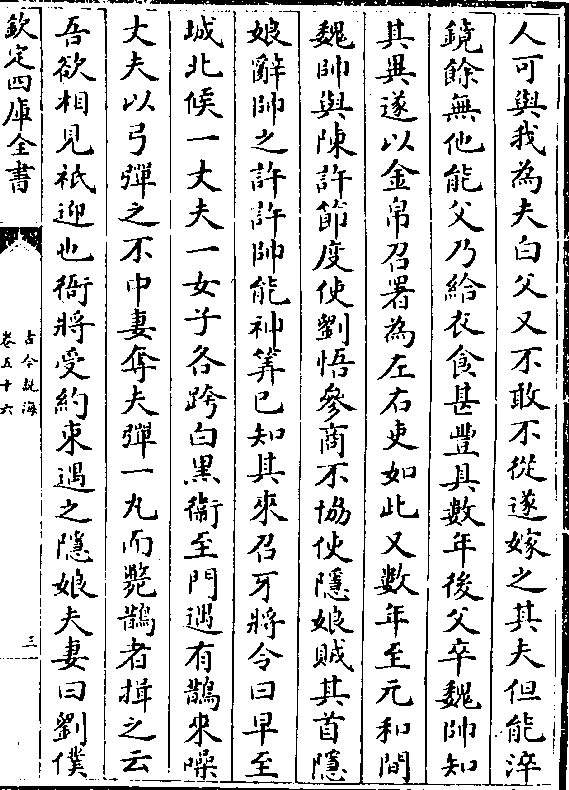 人可與我為夫白父又不敢不從遂嫁之其夫但能淬
鏡餘無他能父乃給衣食甚豐具數年後父卒魏帥知
其異遂以金帛召署為左右吏如此又數年至元和間
魏帥與陳許節度使劉悟參商不協使隱娘賊其首隱
娘辭帥之許許帥能神筭已知其來召牙將令曰早至
城北候一丈夫一女子各跨白黑衛至門遇有鵲來噪
丈夫以弓彈之不中妻奪夫彈一丸而斃鵲者揖之云
吾欲相見祇迎也衙將受約束遇之隱娘夫妻曰劉僕
欽定四庫全書
古今說海
卷五十六
三